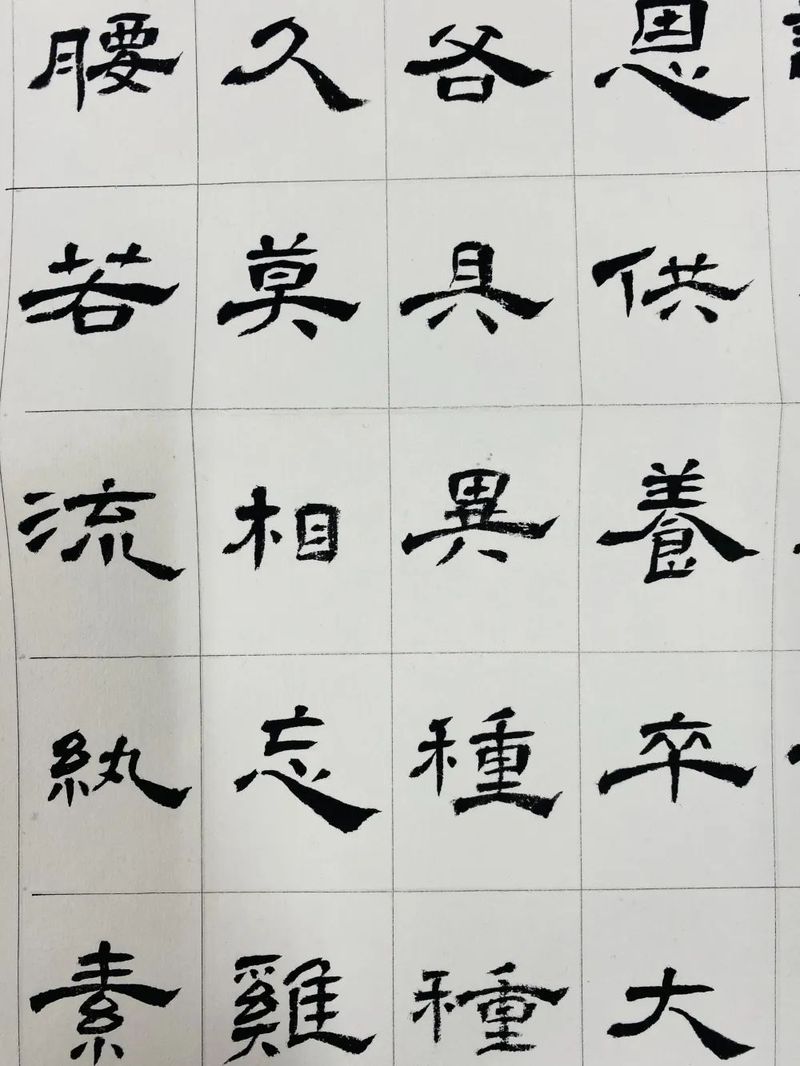 恩供養卒大
各具異種種
久莫相忘雞
腰若流紈素